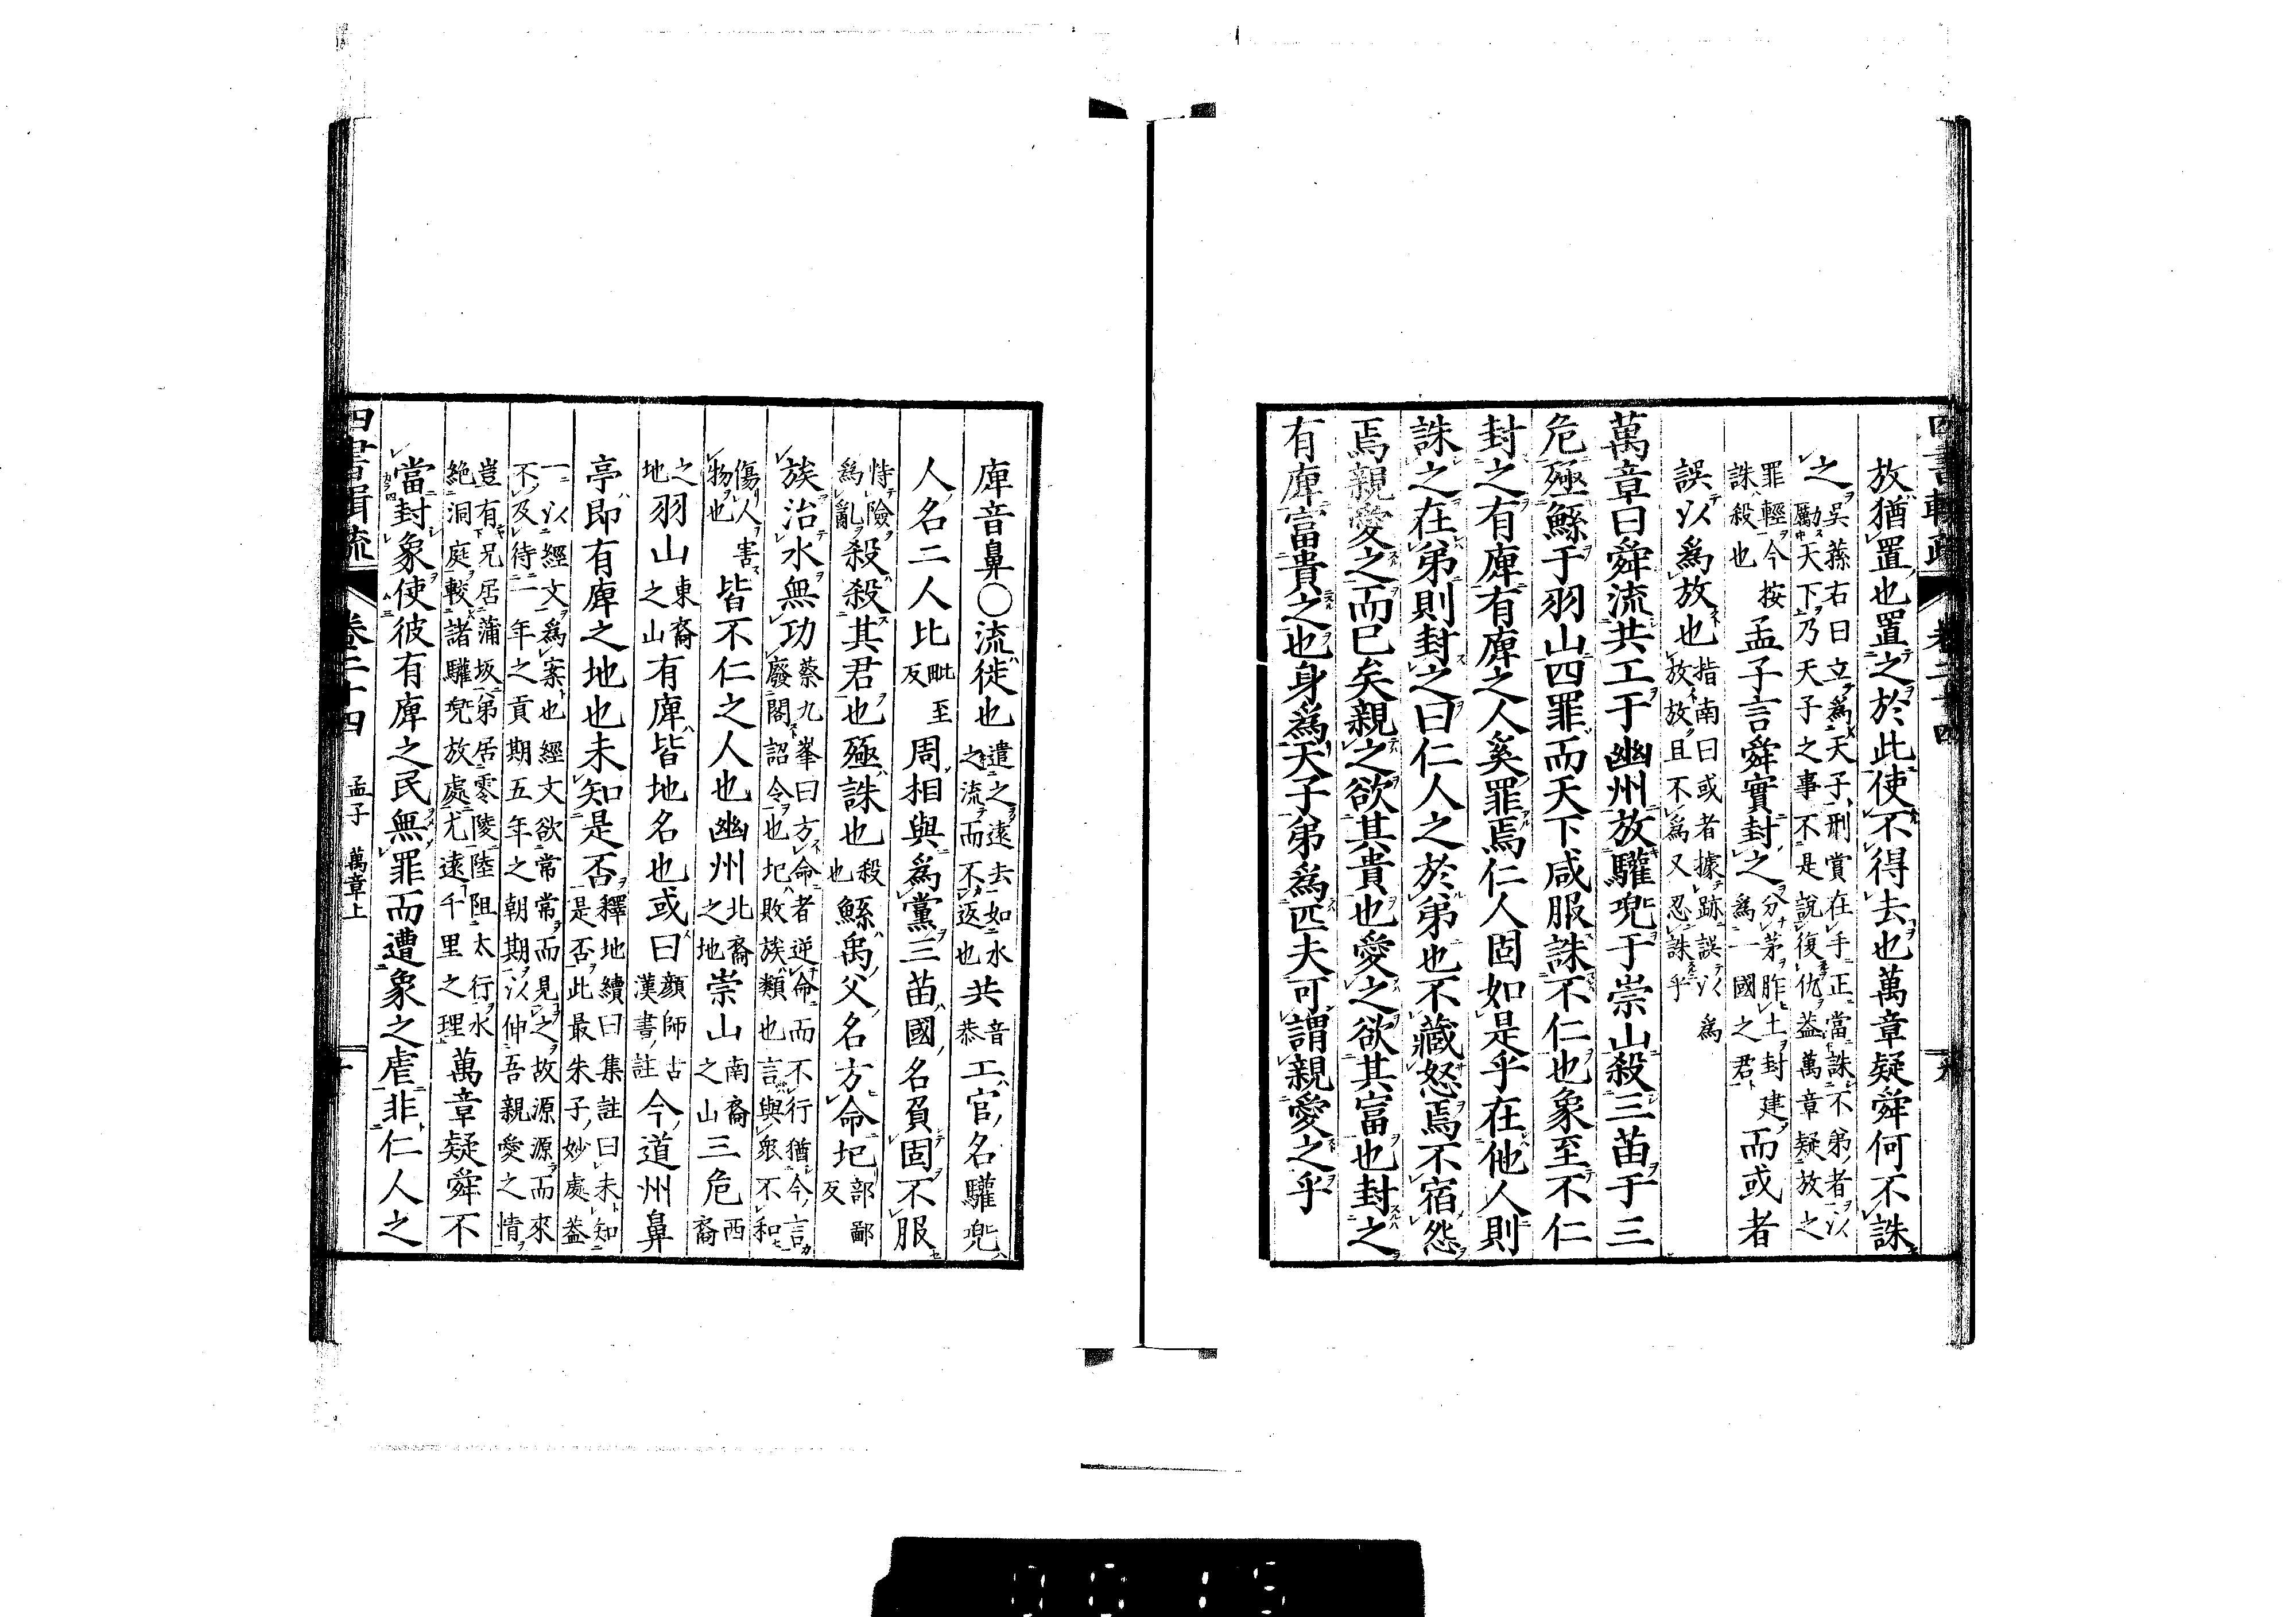 四書輯疏 卷二十四 九
放猶置也置之於此使不得去也萬章疑舜何不誅
之吳蓀右曰立爲天子刑賞在手正當誅不弟者以
勵天下乃天子之事不是說復仇蓋萬章疑放之
罪輕今按
誅殺也
孟子言舜實封之分茅胙土封建
爲一國之君
而或者
誤以爲放也指南曰或者據跡誤以爲
放放且不爲又忍誅乎
萬章曰舜流共工于幽州放驩兜于崇山殺三苗于三
危殛鯀于羽山四罪而天下咸服誅不仁也象至不仁
封之有庳有庳之人奚罪焉仁人固如是乎在他人則
誅之在弟則封之曰仁人之於弟也不藏怒焉不宿怨
焉親愛之而已矣親之欲其貴也愛之欲其富也封之
有庳富貴之也身爲天子弟爲匹夫可謂親愛之乎
庳音鼻○流徙也遣之遠去如水
之流而不返也
共音
恭
工官名驩兜
人名二人比毗至
反
周相與爲黨三苗國名負固不服
恃險
爲亂
殺殺其君也殛誅也殺
也
鯀禹父名方命圮部鄙
反
族治水無功蔡九峯曰方命者逆命而不行猶今言
廢閣詔令也圮敗族類也言與眾不和
傷人害
物也
皆不仁之人也幽州北裔
之地
崇山南裔
之山
三危西裔
之
地
羽山東裔
之山
有庳皆地名也或曰顏師古
漢書註
今道州鼻
亭即有庳之地也未知是否釋地續曰集註曰未知
是否此最朱子妙處蓋
一以經文爲案也經文欲常常而見之故源源而來
不及待一年之貢期五年之朝期以伸吾親愛之情
豈有兄居蒲坂弟居零陵陸阻太行水
絕洞庭較諸驩兜放處尤遠千里之理
萬章疑舜不
當封象使彼有庳之民無罪而遭象之虐非仁人之
四書輯疏 卷二十四 孟子 萬章上 十